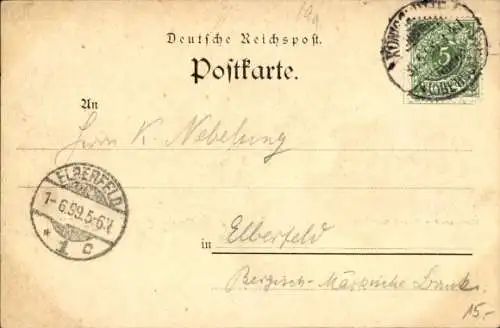 Deutsche Reichspost.
KÖNIGSHÜTTE
5
(OBERSCHL.)
Postkarte.
An
Herrn K. Nebelung
ELBERFELD
1-6.99.5-6N
* 1 c
in Elberfeld
Bergisch-Märkische Bank.
15.-